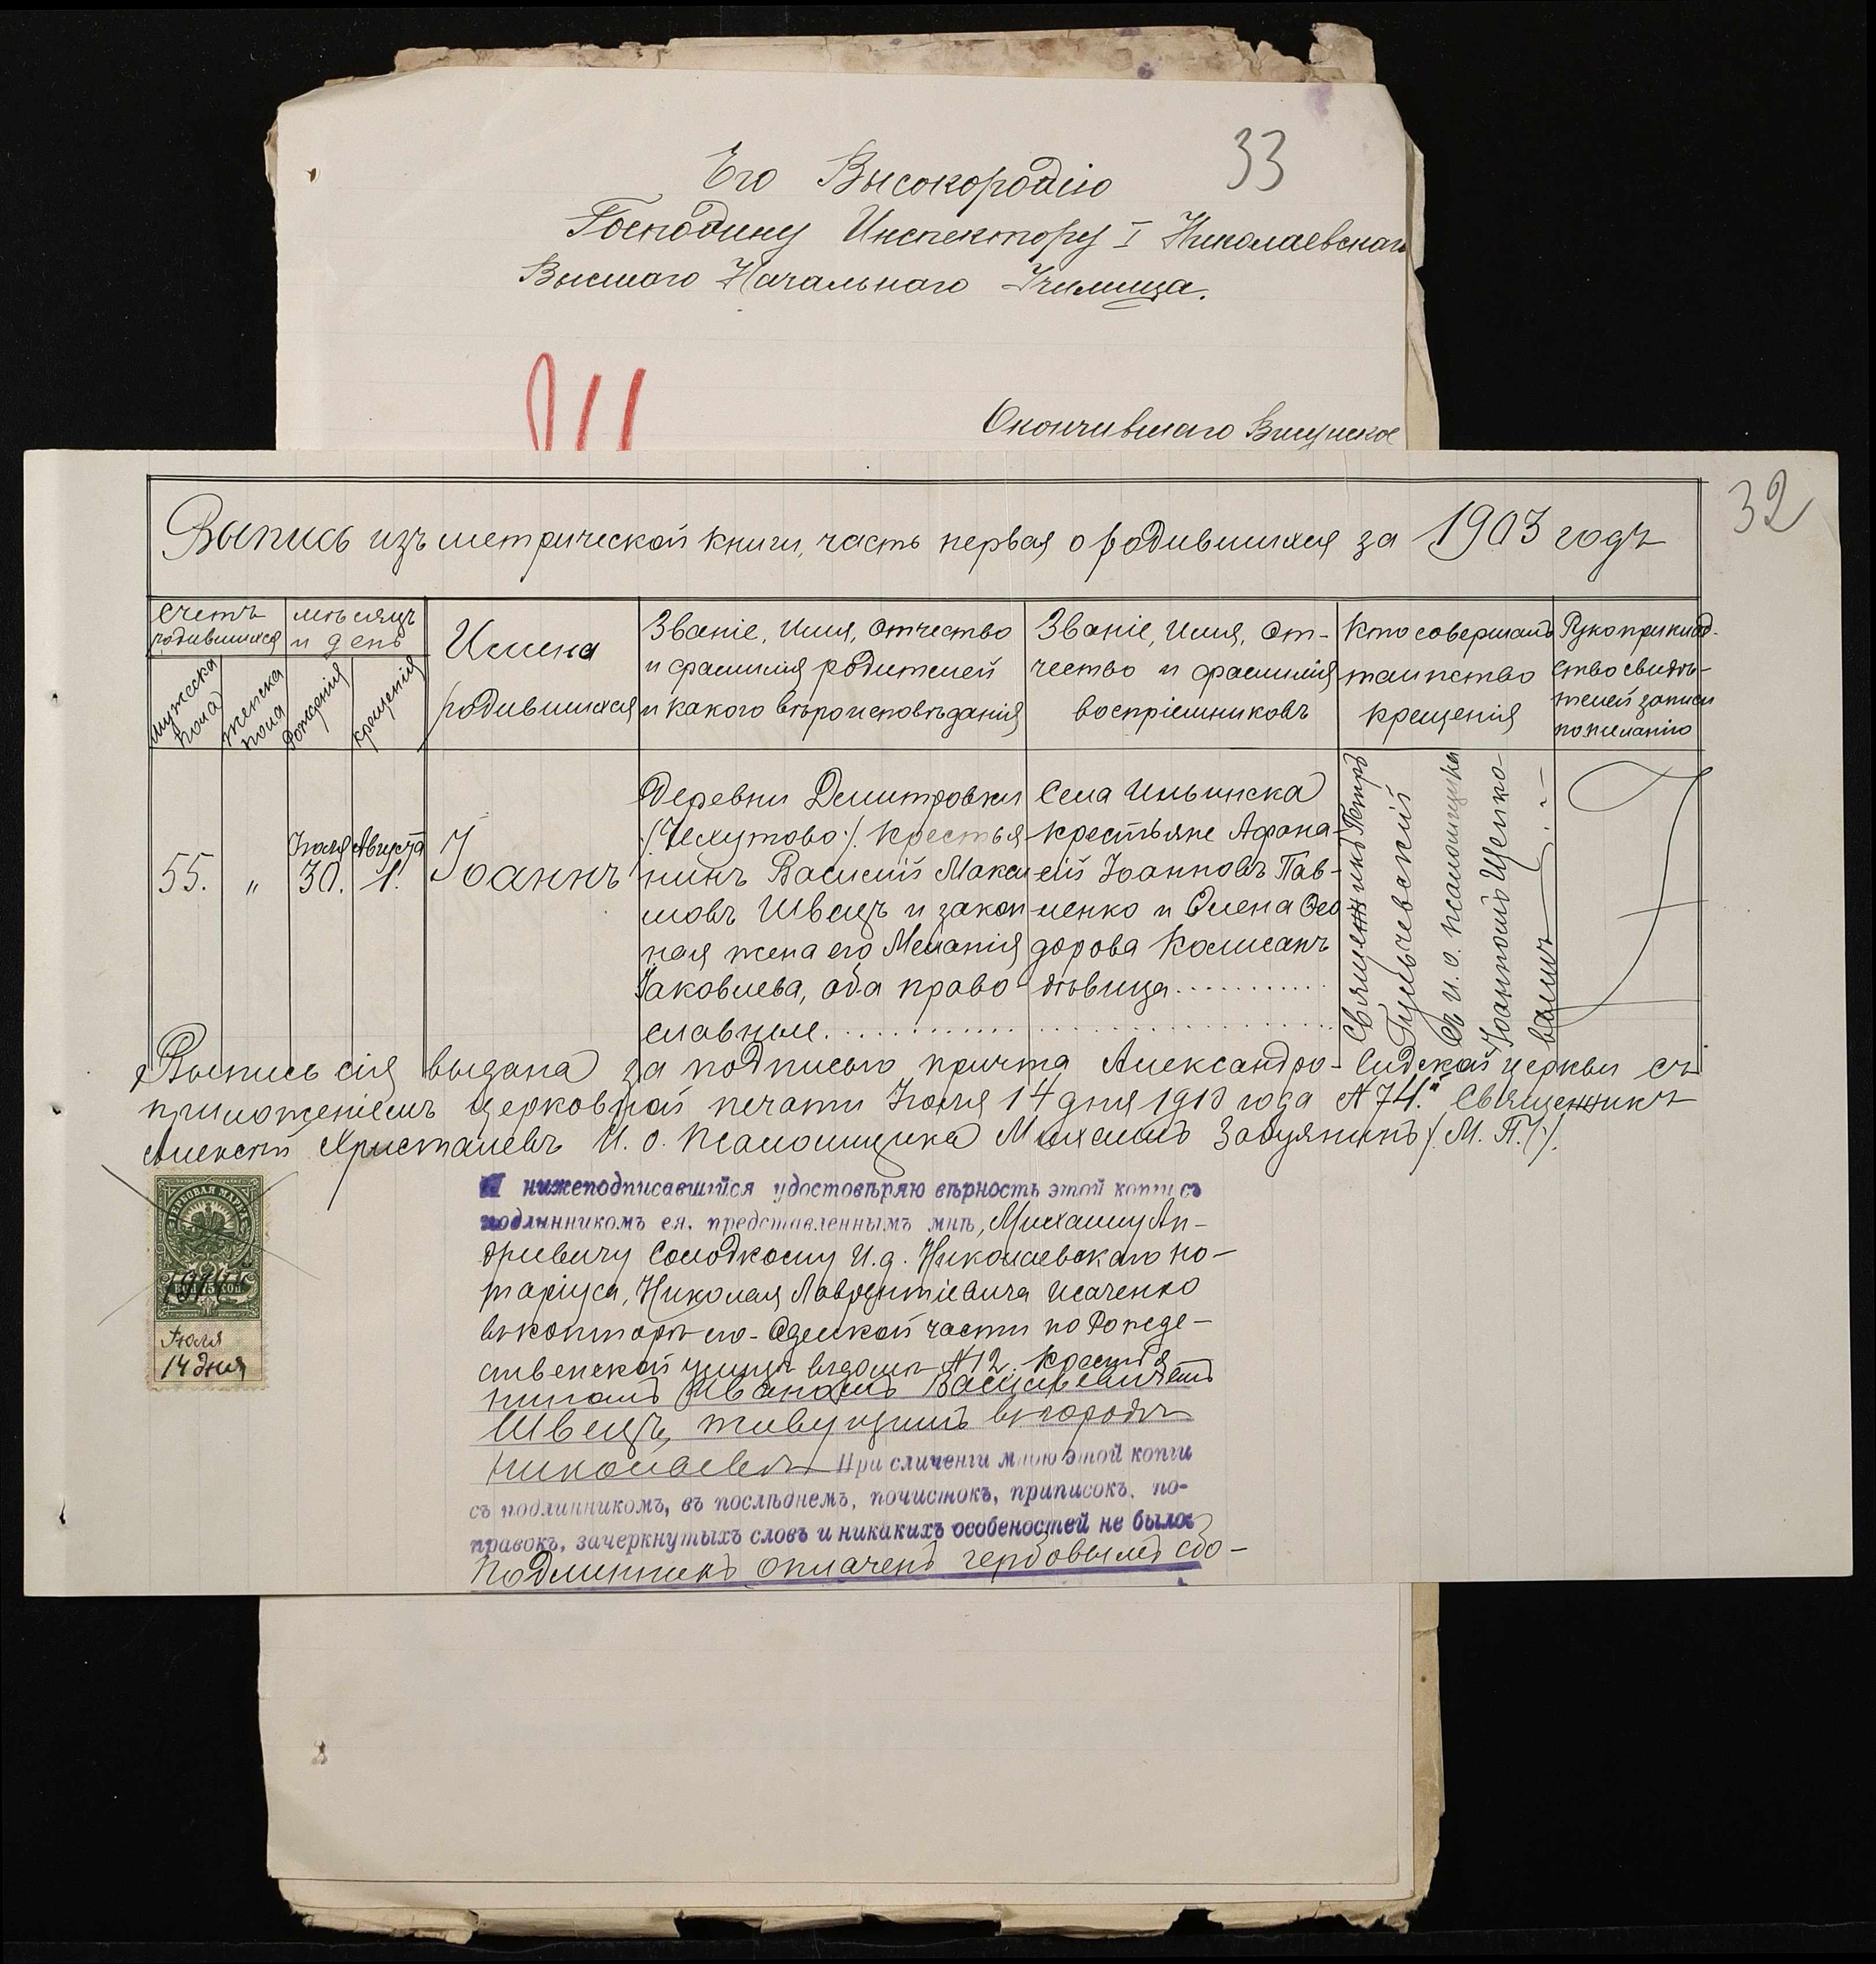 33
Его Высокородію
Господину Инспектору I Николаевскаго
Высшаго Начальнаго Училища.
Окончившаго
32
Выпись изъ метрической книги, часть первая о родившихся за 1903 годъ
Счетъ родившихся
мужеска пола
женска пола
мѣсяцъ и день
рожденія
крещенія
Имена
родившихся
Званіе, Имя, Отчество
и фамилія родителей
и какого вѣроисповѣданія
Званіе, Имя, От-
чество и фамилія
воспріемниковъ
Кто совершалъ
таинство
крещенія
Рукоприклад-
ство свидѣ-
телей записи
по желанію
55.
"
Іюля
30.
Августа
1.
Іоаннъ
Деревни Димитровки
/:Чехутово:/ Крестья-
нинъ Василій Макси
мовъ Швецъ и закон
ная жена его Меланія
Іаковлева, оба право-
славные.
Села Ильинска
крестьяне Афана-
сій Іоанновъ Пав-
ленко и Елена Ѳео
дорова Калисанъ
дѣвица
Священникъ Петръ
Гульчевскій
Съ и. о. псаломщика
Іоанномъ Щетко-
вымъ
Выпись сія выдана за подписью причта Александро- церкви съ
приложеніемъ церковной печати Іюля 14 дня 1910 года №74." Священникъ
Алексѣй Христалевъ И. о. Псаломщика Михаилъ /М. П./.
ГЕРБОВАЯ МАРКА
75 коп.
Іюля
14 дня
Я нижеподписавшійся удостовѣряю вѣрность этой копіи съ
подлинникомъ ея, представленнымъ мнѣ, Михаилу Ан-
дреевичу Солодкому И. д. Николаевскаго но-
таріуса, Николая Лаврентіевича Исаченко
въ конторѣ его- Одесской части по Рожде-
ственской улицѣ въ домѣ №12. Крестья
ниномъ Иваномъ Васильевичемъ
Швецъ, живущимъ въ городѣ
Николаевѣ При сличеніи мною этой копіи
съ подлинникомъ, въ послѣднемъ, почистокъ, приписокъ, по-
правокъ, зачеркнутыхъ словъ и никакихъ особеностей не было
Подлинникъ оплаченъ гербовымъ сбо-